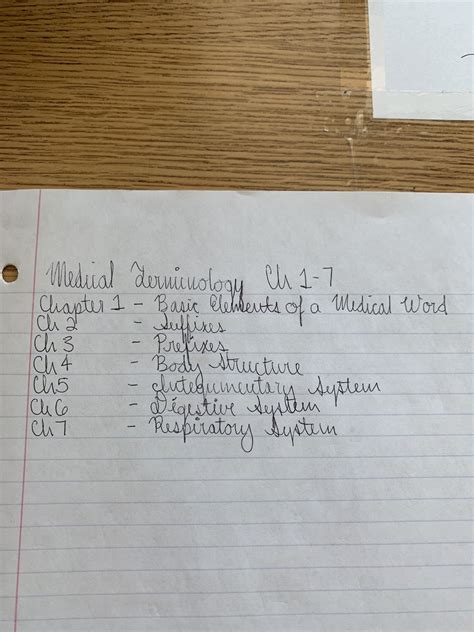 Medical Terminology Ch 1-7
Chapter 1 - Basic Elements of a Medical Word
Ch 2 - Suffixes
Ch 3 - Prefixes
Ch 4 - Body Structure
Ch 5 - Integumentary System
Ch 6 - Digestive System
Ch 7 - Respiratory System